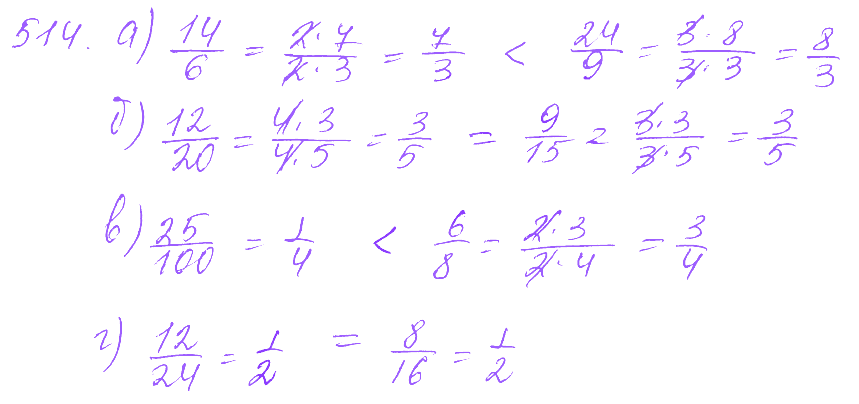 514. а) 14/6 = 2·7/2·3 = 7/3 < 24/9 = 3·8/3·3 = 8/3
б) 12/20 = 4·3/4·5 = 3/5 = 9/15 = 3·3/3·5 = 3/5
в) 25/100 = 1/4 < 6/8 = 2·3/2·4 = 3/4
г) 12/24 = 1/2 = 8/16 = 1/2